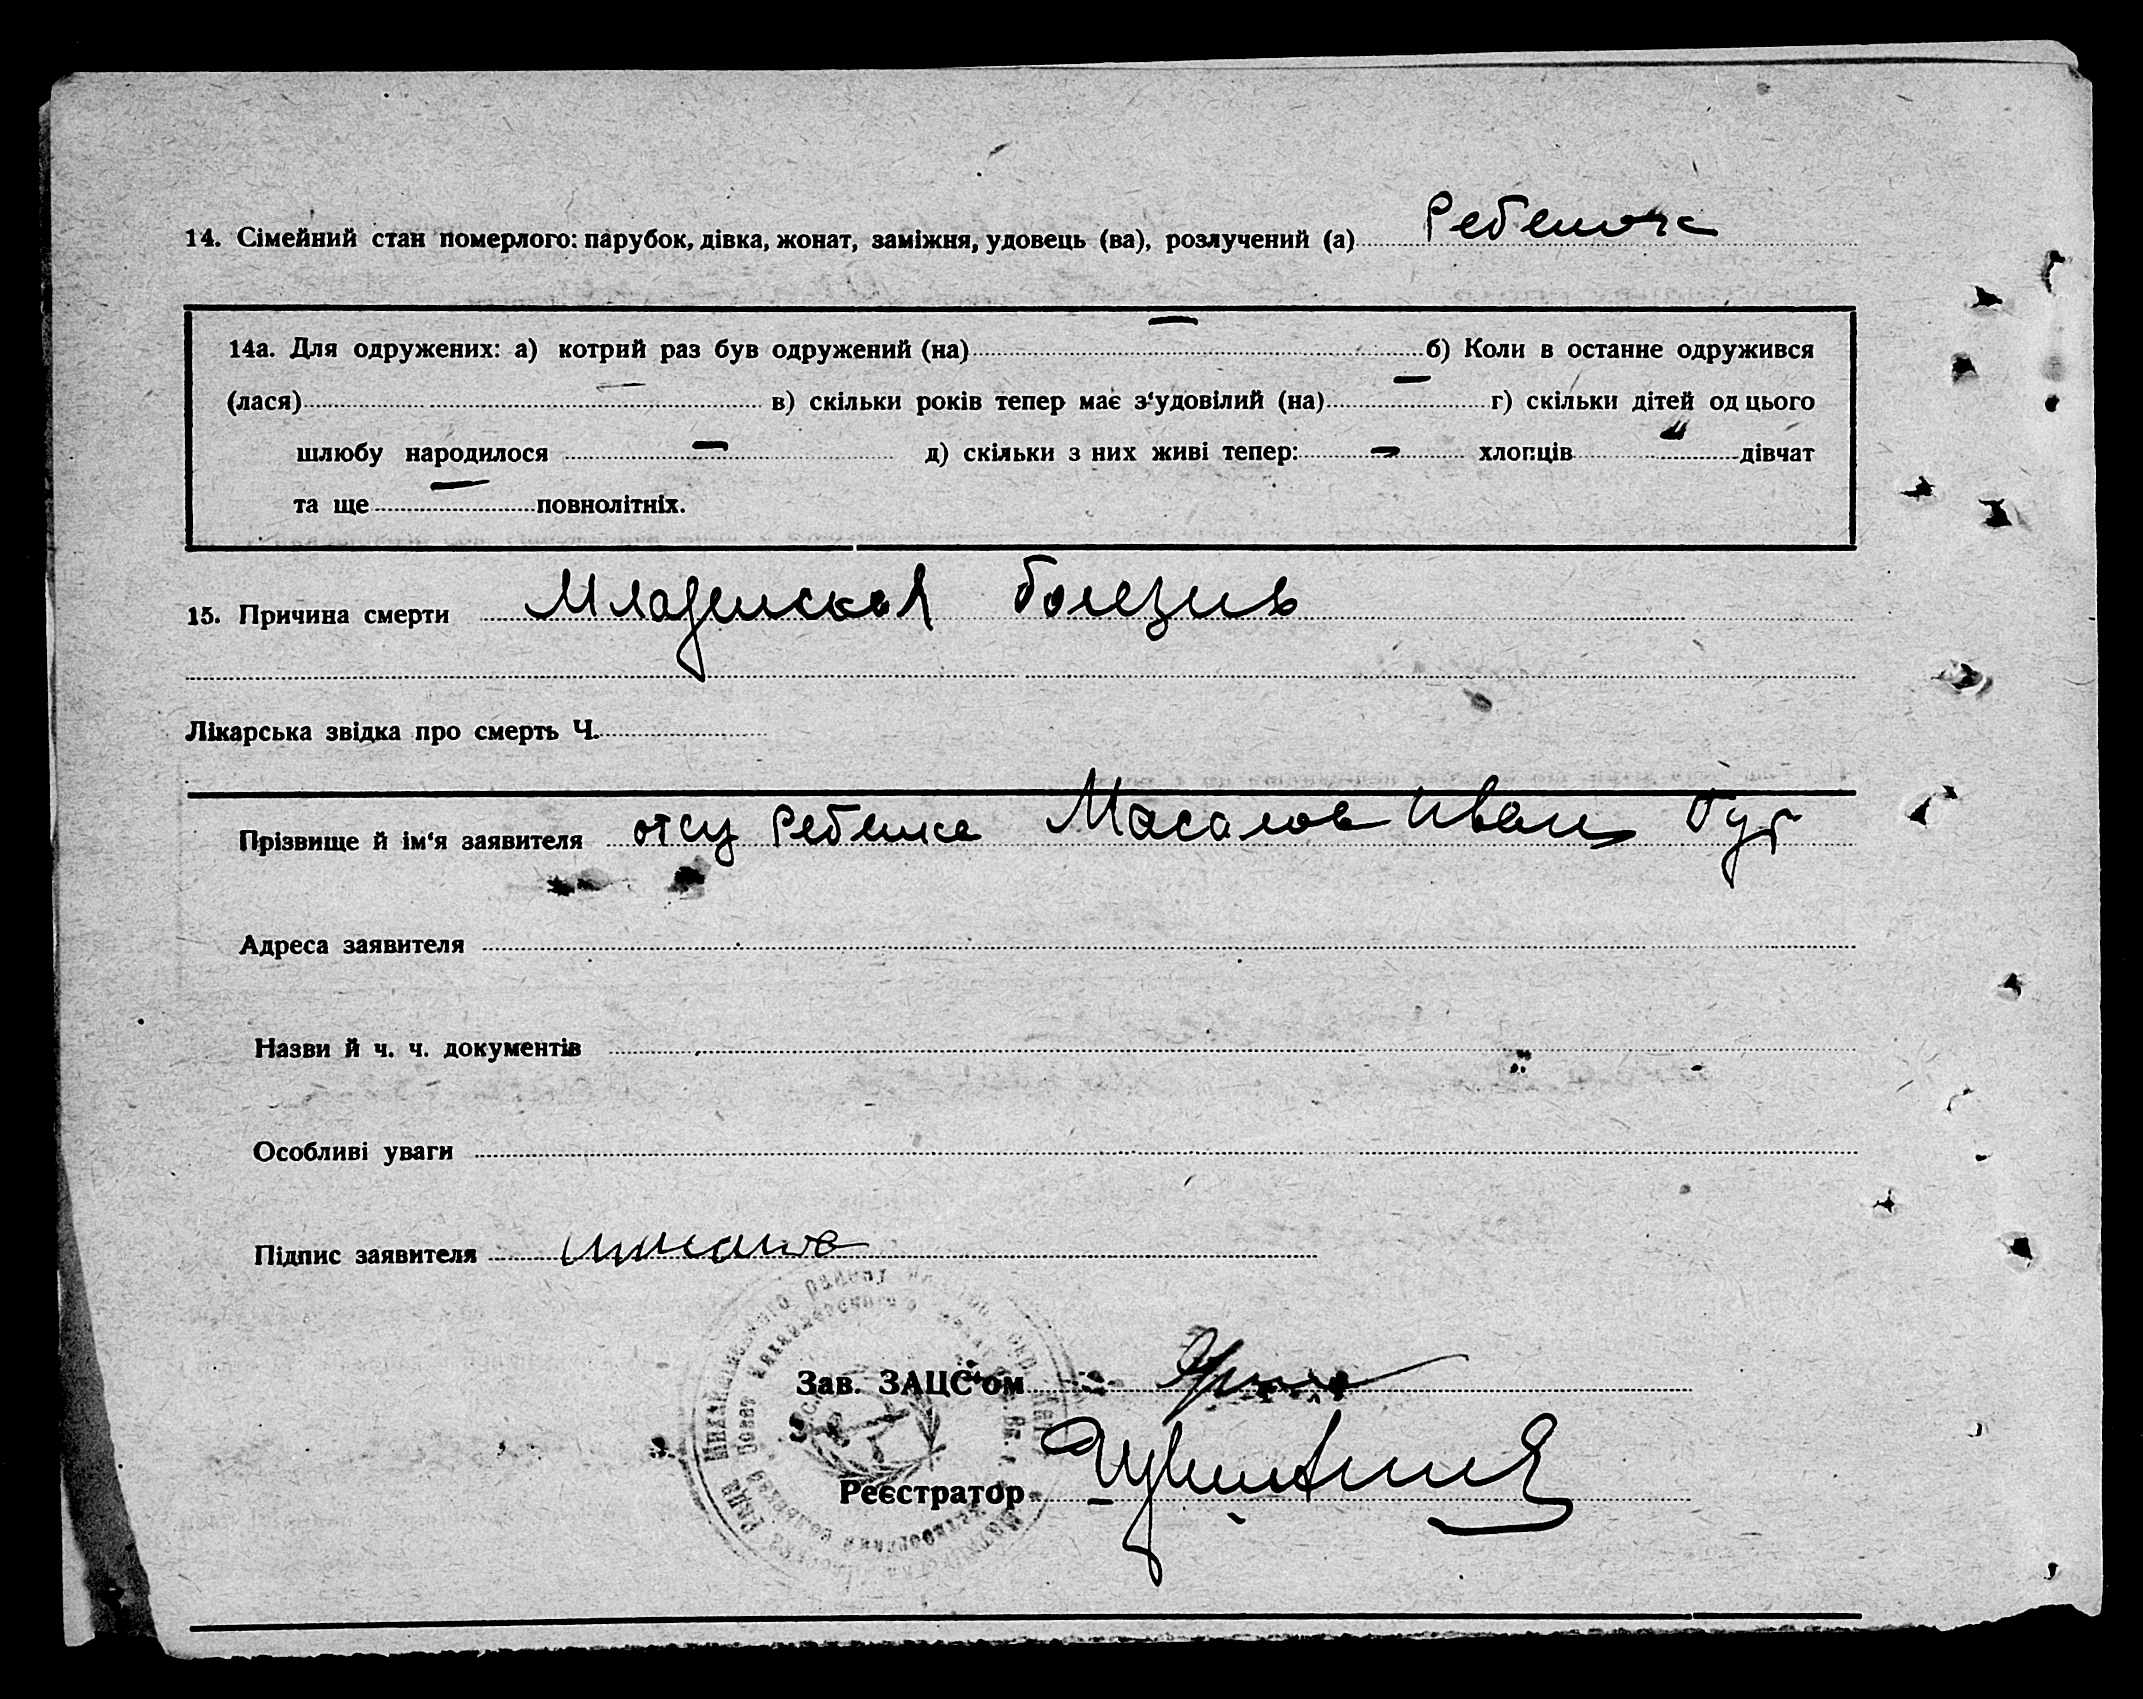 14. Сімейний стан померлого: парубок, дівка, жонат, заміжня, удовець (ва), розлучений (а) Ребенок
14а. Для одружених: а) котрий раз був одружений (на) — б) Коли в останнє одружився
(лася) — в) скільки років тепер має з‘удовілий (на) — г) скільки дітей од цього
шлюбу народилося — д) скільки з них живі тепер: — хлопців дівчат
та ще — повнолітніх.
15. Причина смерти Младенская болезнь
Лікарська звідка про смерть Ч.
Прізвище й ім‘я заявителя отец Ребенка Масалов Иван
Адреса заявителя
Назви й ч. ч. документів
Особливі уваги
Підпис заявителя
Зав. ЗАЦС‘ом
Реєстратор